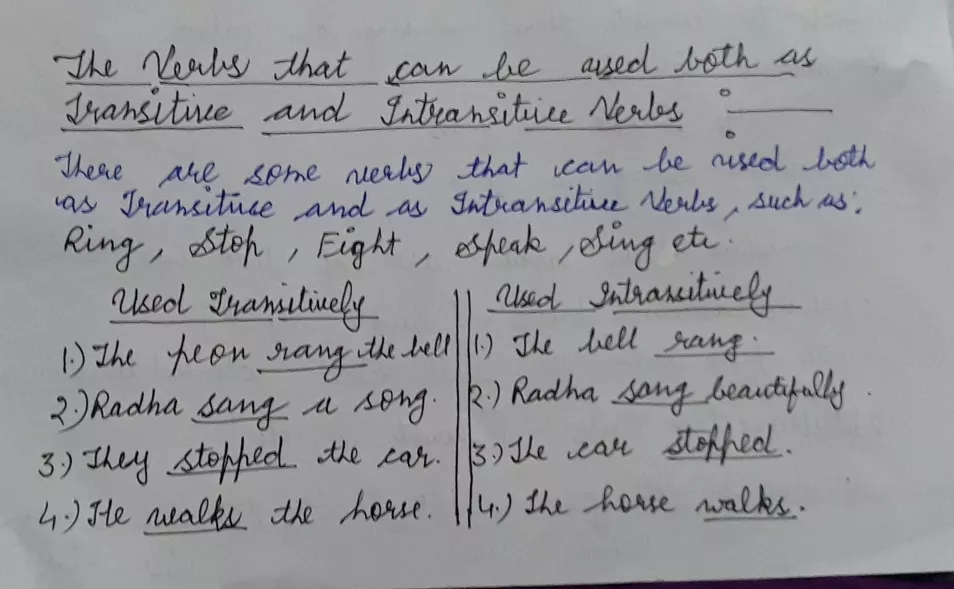 The Verbs that can be used both as
Transitive and Intransitive Verbs :
There are some verbs that can be used both
as Transitive and as Intransitive Verbs, such as:
Ring, Stop, Eight, Speak, Sing etc.
Used Transitively
1.) The peon rang the bell
2.) Radha sang a song.
3.) They stopped the car.
4.) He walks the horse.
Used Intransitively
1.) The bell rang.
2.) Radha sang beautifully.
3.) The car stopped.
4.) The horse walks.